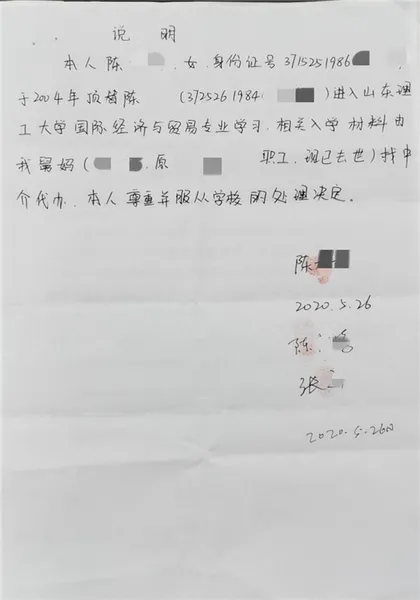 说 明
本人陈 ，女，身份证号3715251986
于2004年顶替陈 (3725261984 )进入山东理
工大学国际经济与贸易专业学习，相关入学材料由
我舅妈( ，原 职工，现已去世)找中
介代办，本人尊重并服从学校的处理决定。
陈
2020.5.26
陈
张
2020.5.26日